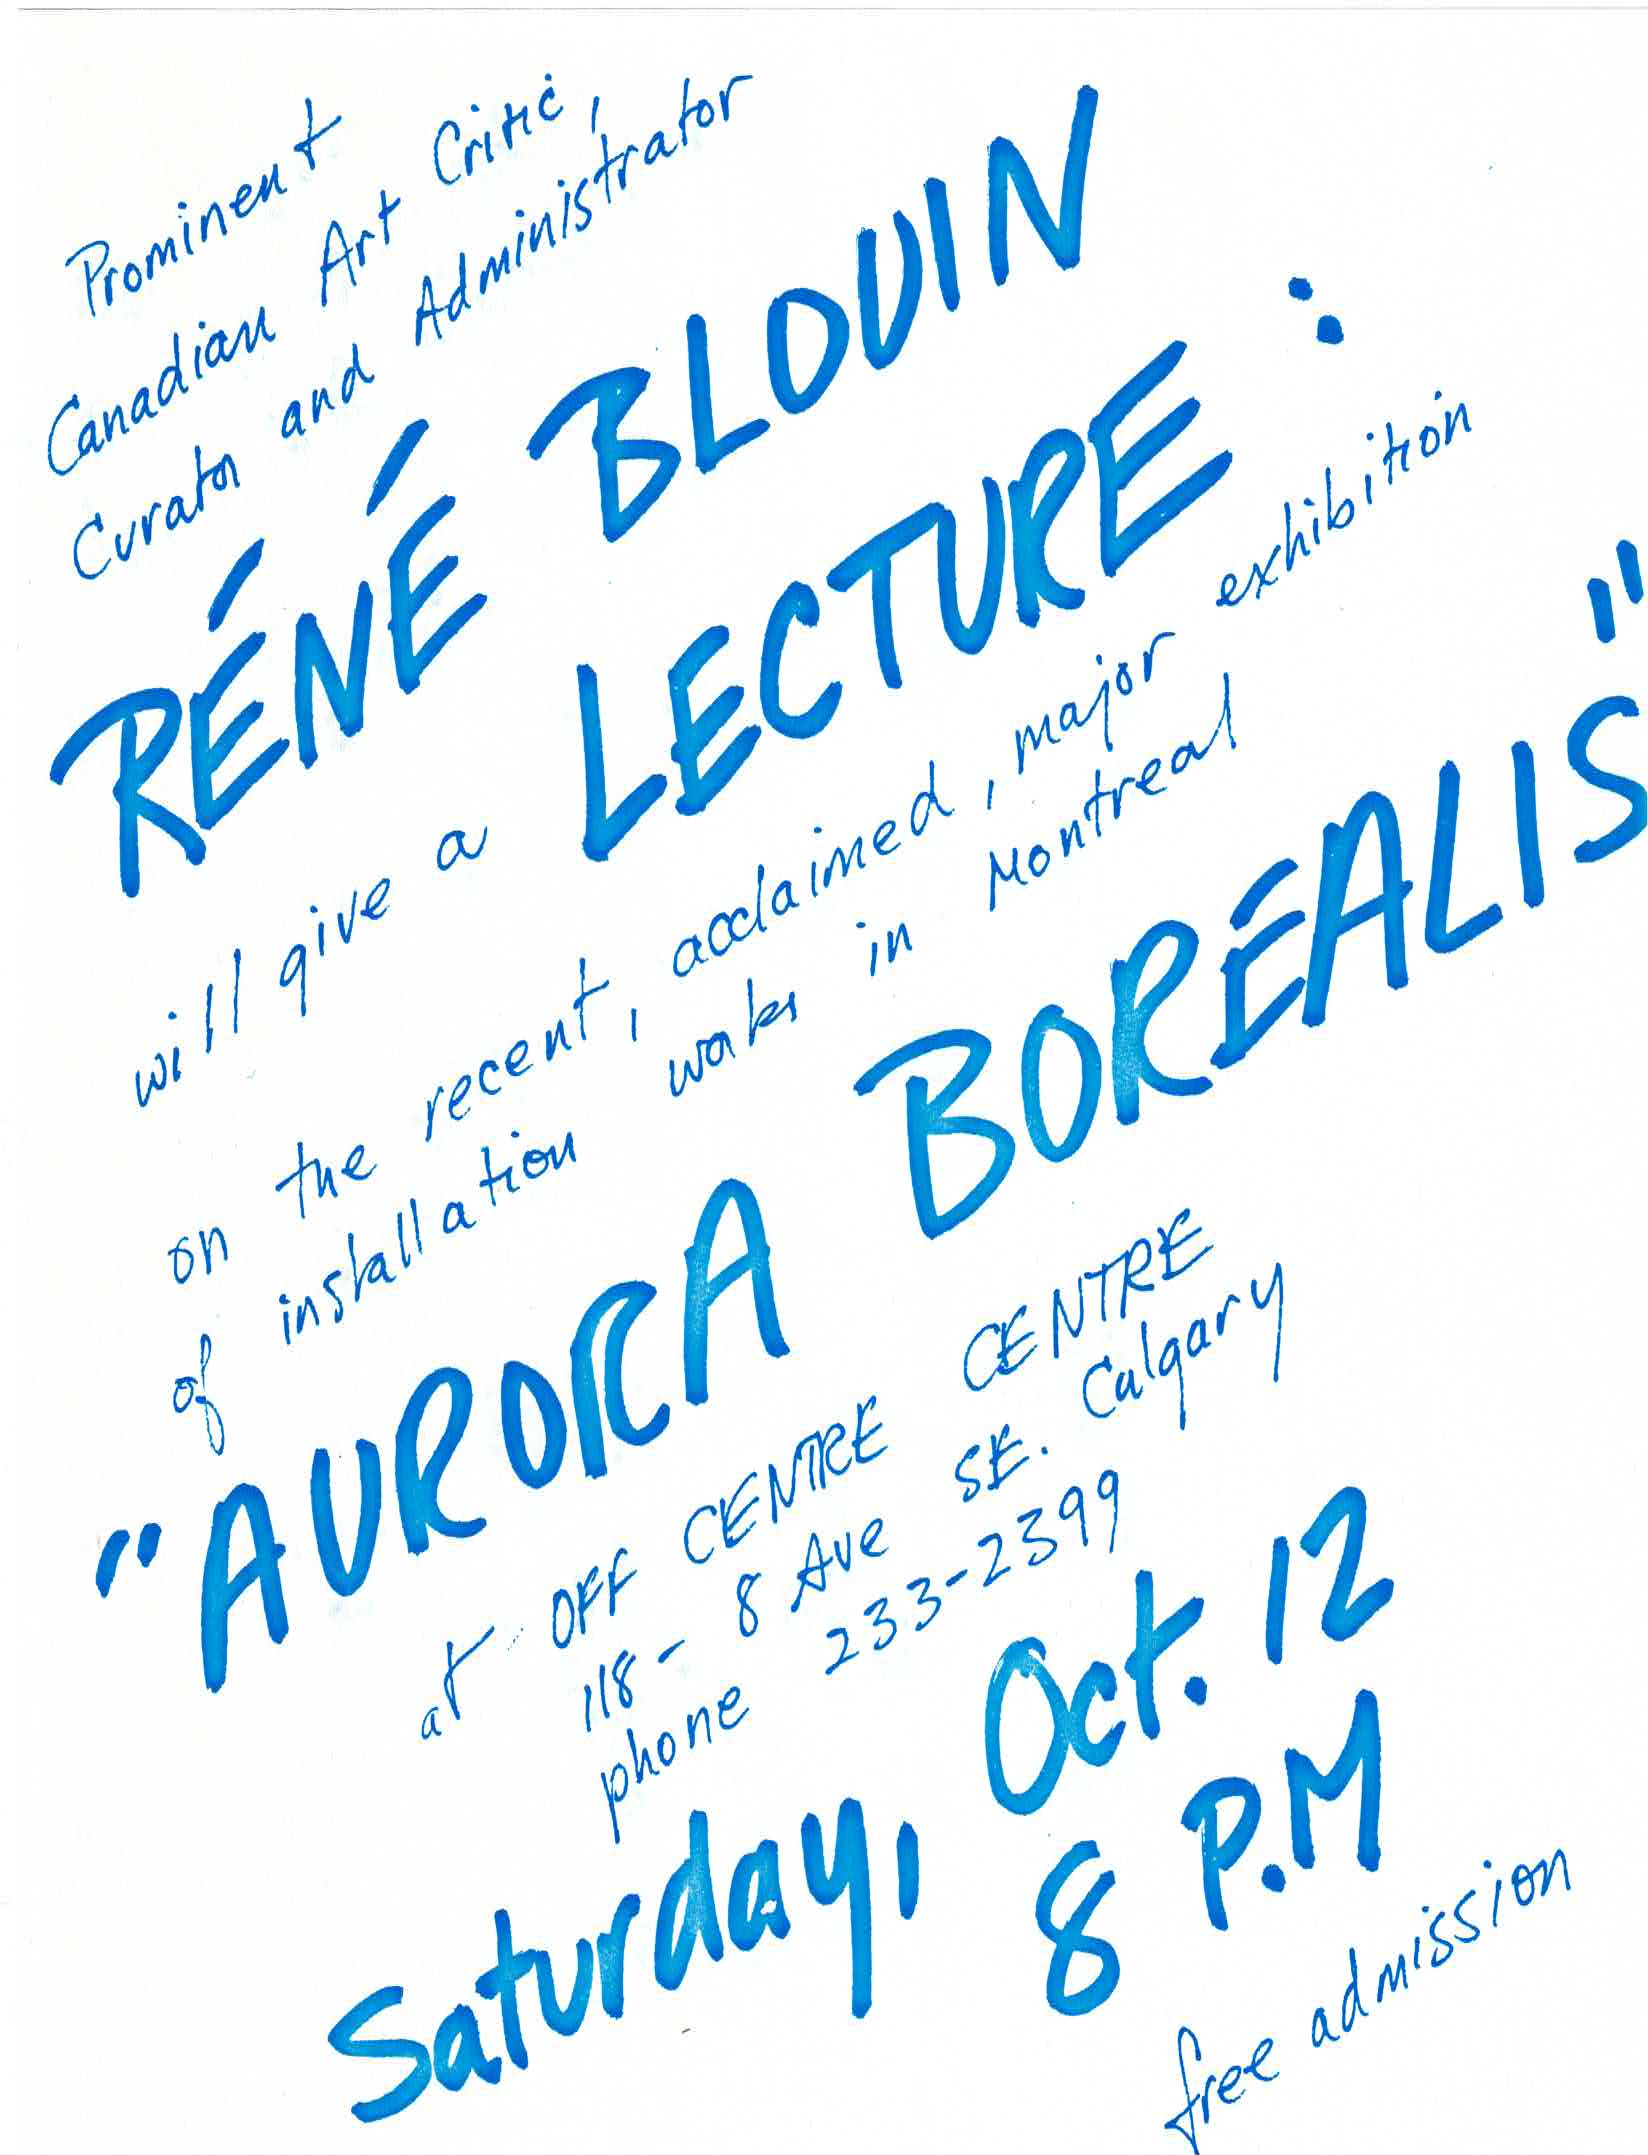 Prominent
Canadian Art Critic,
Curator and Administrator
RÉNÉ BLOUIN
will give a LECTURE :
on the recent, acclaimed, major exhibition
of installation works in Montreal
"AURORA BOREALIS"
at OFF CENTRE CENTRE
118 - 8 Ave SE. Calgary
phone 233-2399
Saturday, Oct. 12
8 P.M
free admission